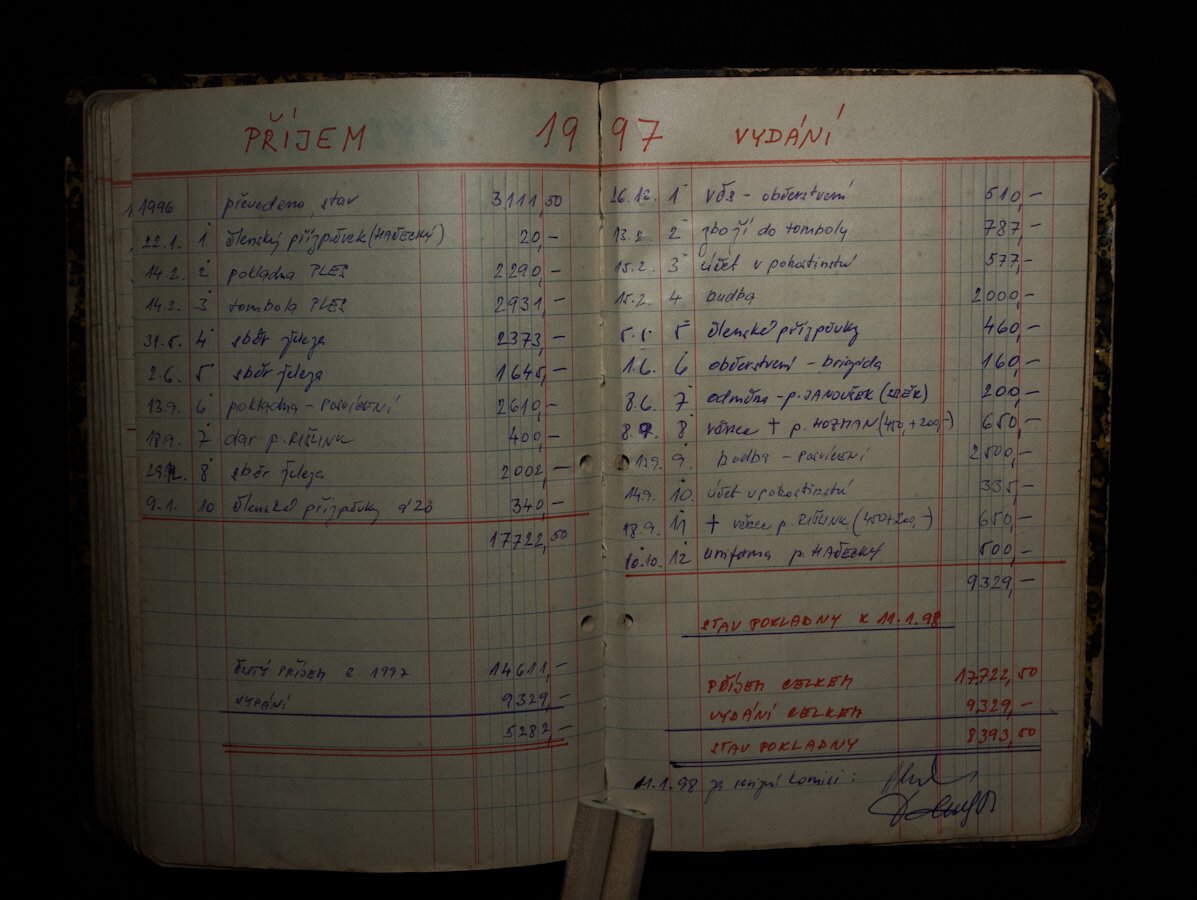 PŘÍJEM 19
1996 převedeno, stav 3111,50
22.1. 1 členský příspěvek (HAŠECKÝ) 20,—
14.2. 2 pokladna PLES 2290,—
14.2. 3 tombola PLES 2931,—
31.5. 4 sběr železa 2373,—
2.6. 5 sběr železa 1645,—
13.9. 6 pokladna - POSVÍCENÍ 2610,—
18.9. 7 dar p. RIŠLINK 400,—
8 sběr železa 2002,—
9.1. 10 členské příspěvky á 20 340,—
17722,50
ČISTÝ PŘÍJEM r. 1997 14611,—
VYDÁNÍ 9329,—
5282,—
97 VYDÁNÍ
26.12. 1 VČS - občerstvení 510,—
13.2. 2 zboží do tomboly 787,—
15.2. 3 účet v pohostinství 577,—
15.2. 4 hudba 2000,—
5.5. 5 členské příspěvky 460,—
1.6. 6 občerstvení - brigáda 160,—
8.6. 7 odměna - p. JANOUŠEK (SBĚR) 200,—
8.9. 8 věnec + p. HOZMAN (450,+200,-) 650,—
13.9. 9. hudba - POSVÍCENÍ 2500,—
14.9. 10. účet v pohostinství 335,—
18.9. 11 + věnec p. RIŠLINK (450+200,-) 650,—
10.10. 12 uniforma p. HAŠECKÝ 500,—
9329,—
STAV POKLADNY K 11.1.98
PŘÍJEM CELKEM 17722,50
VYDÁNÍ CELKEM 9329,—
STAV POKLADNY 8393,50
11.1.98 za revizní komisi: